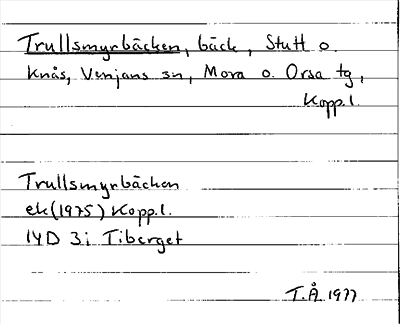 Trullsmyrbäcken, bäck, Stutt o.
Knås, Venjans sn, Mora o. Orsa tg,
Kopp. l.
Trullsmyrbäcken
ek (1975) Kopp. l.
14D 3i Tiberget
T.Å. 1977